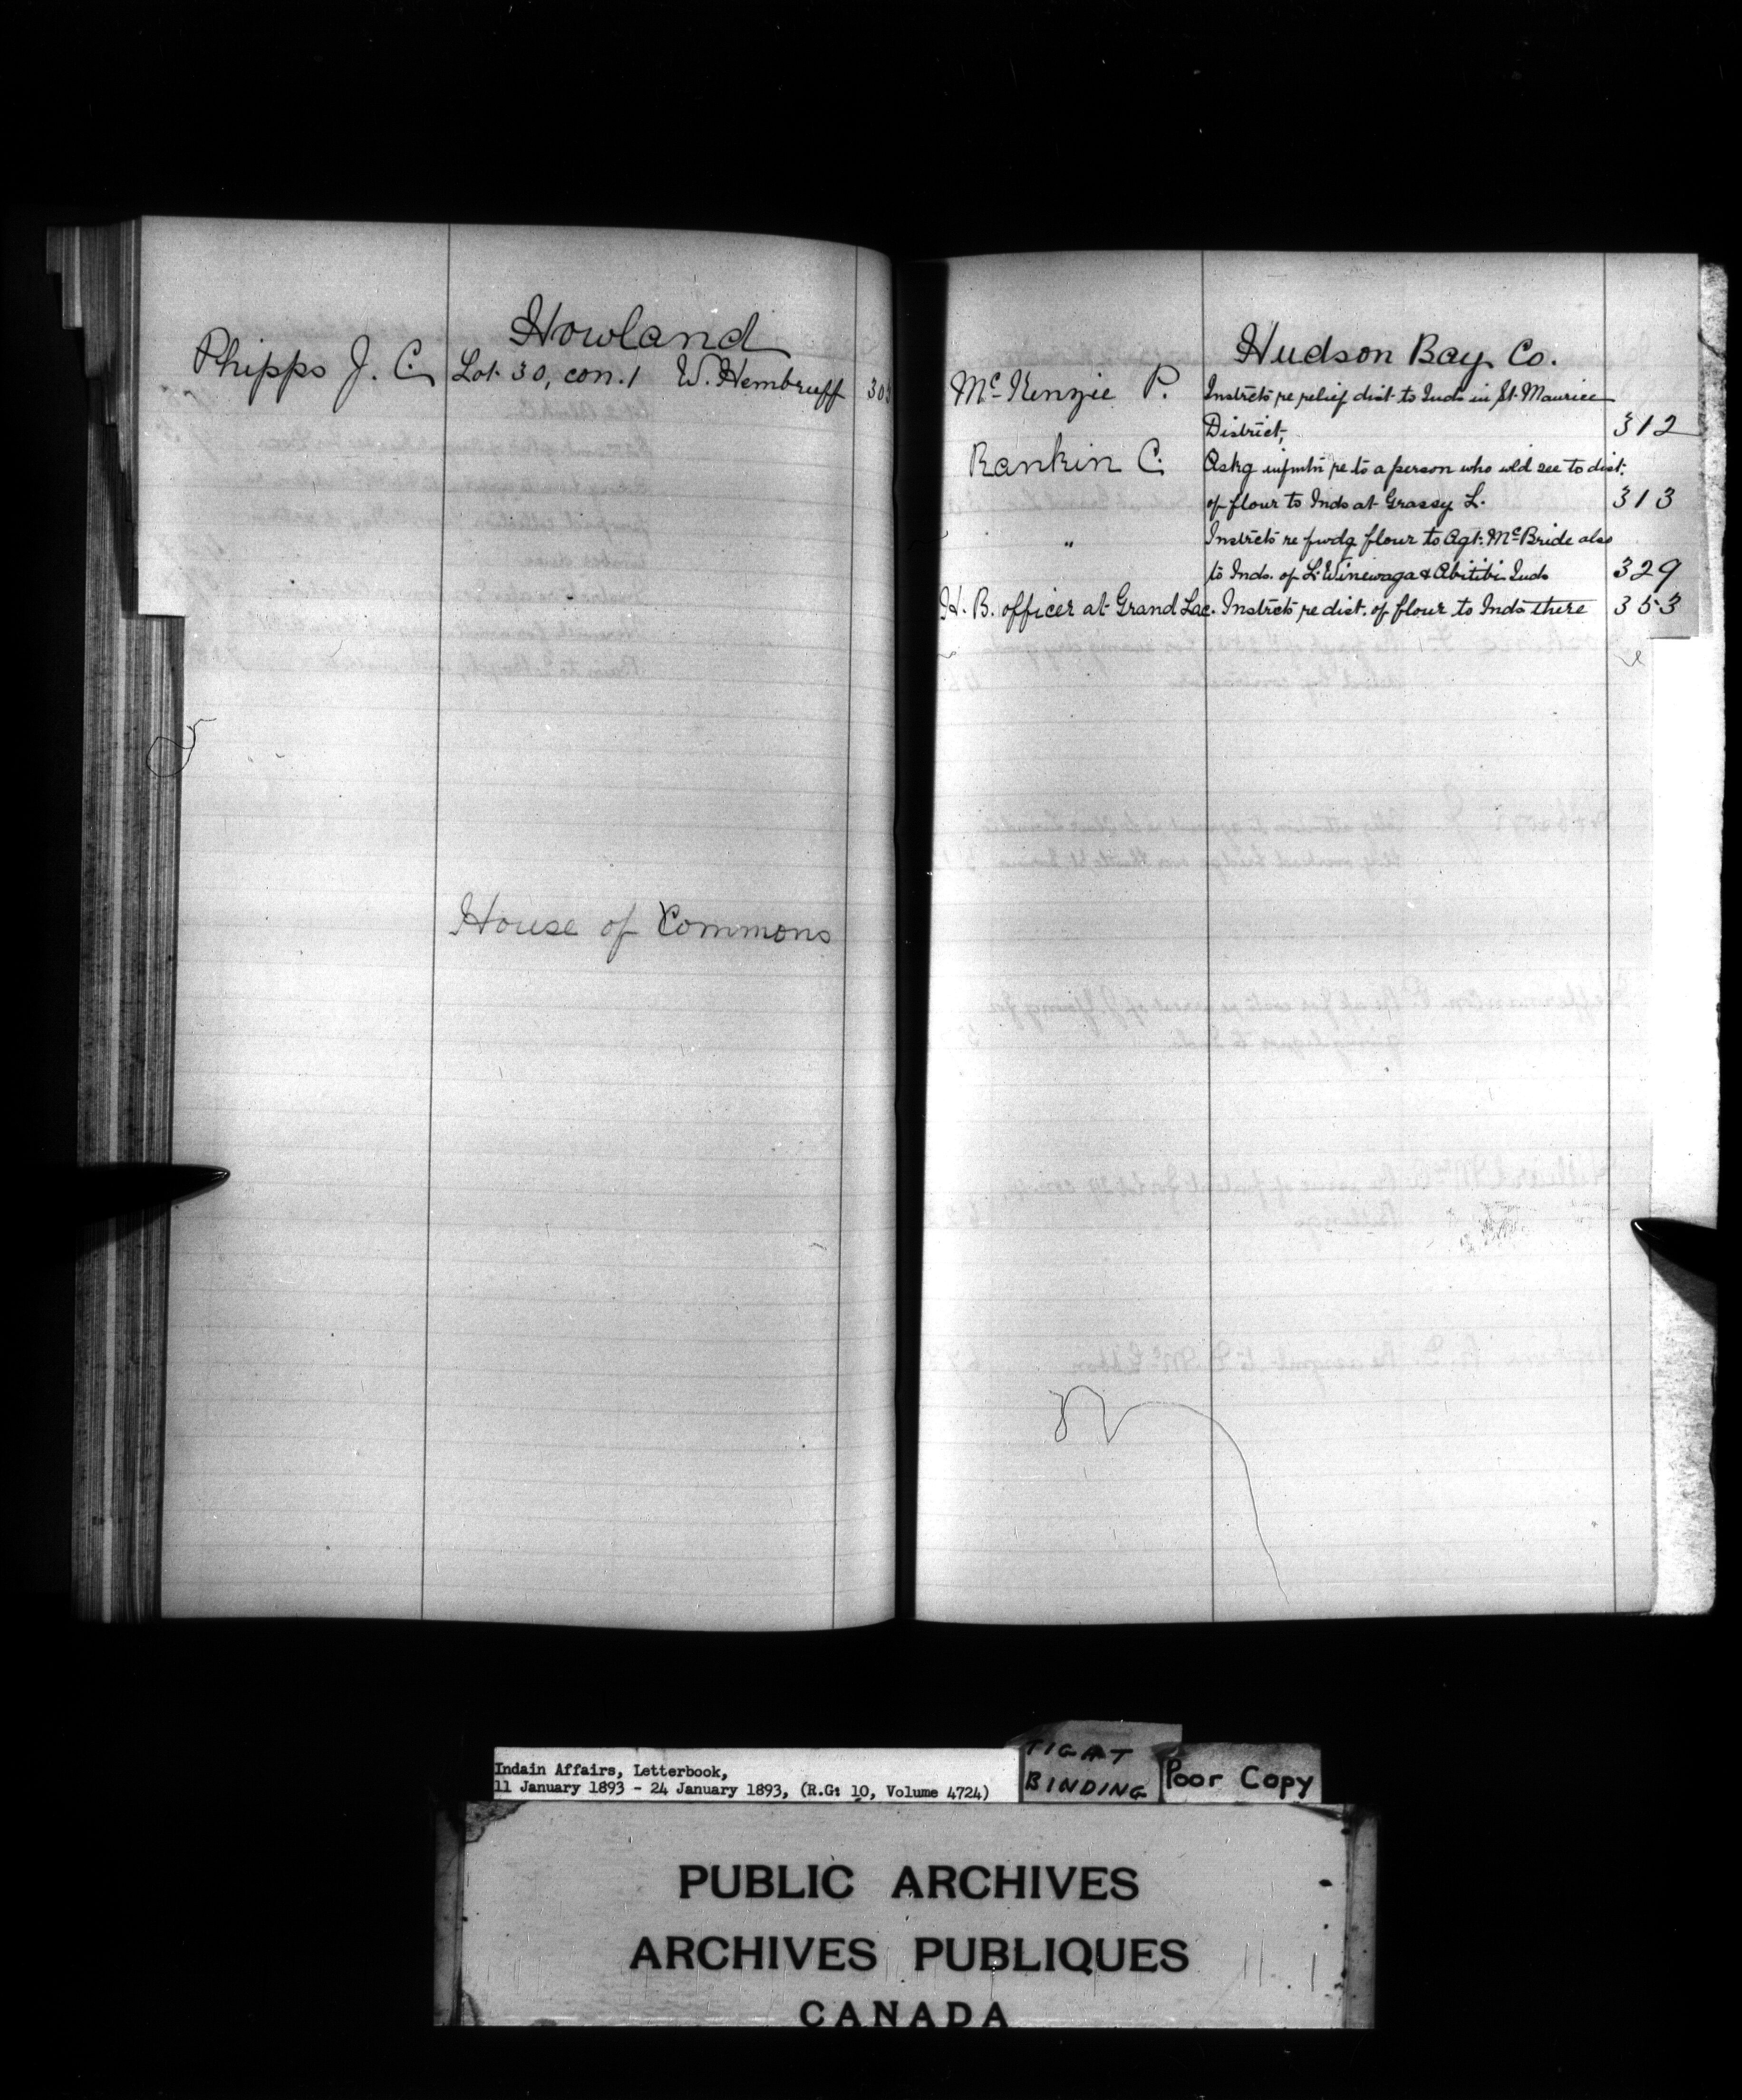 Howland
Phipps J. C. Lot 30, con. 1 W. Hembruff 30
House of Commons
Hudson Bay Co.
McKenzie P. Instrcts re relief dist to Inds in St. Maurice
District, 312
Rankin C. Askg infmtn re to a person who wld see to dist.
of flour to Inds at Grassy L. 313
" Instrcts re fwdg flour to Agt. McBride also
to Inds. of L. Winewaga & Abitibi Inds 329
H. B. officer at Grand Lac. Instrcts re dist. of flour to Inds there 353
Indain Affairs, Letterbook,
11 January 1893 - 24 January 1893, (R.G: 10, Volume 4724)
TIGHT
BINDING
Poor Copy
PUBLIC ARCHIVES
ARCHIVES PUBLIQUES
CANADA